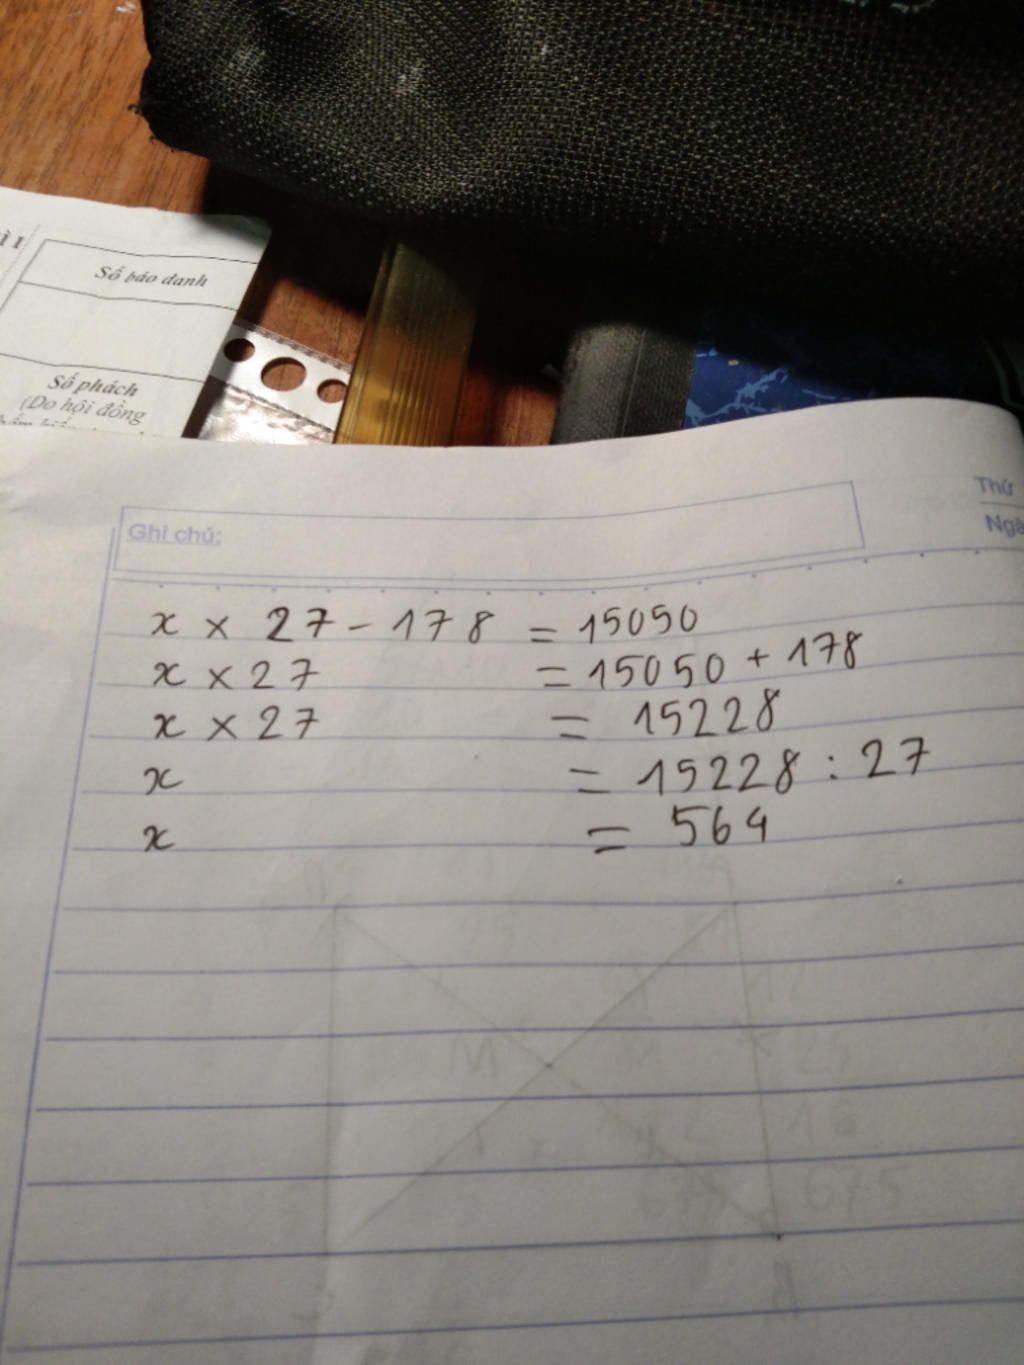 Số báo danh
Số phách
(Do hội đồng
Thứ
Ghi chú:
x × 27 - 178 = 15050
x × 27 = 15050 + 178
x × 27 = 15228
x = 15228 : 27
x = 564